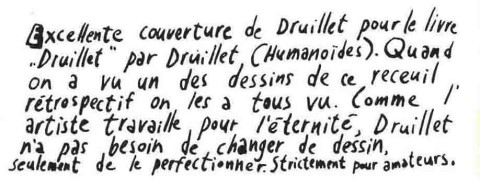 Excellente couverture de Druillet pour le livre
„Druillet" par Druillet, (Humanoïdes). Quand
on a vu un des dessins de ce receuil
rétrospectif on les a tous vu. Comme l'
artiste travaille pour l'éternité, Druillet
n'a pas besoin de changer de dessin,
seulement de le perfectionner. Strictement pour amateurs.